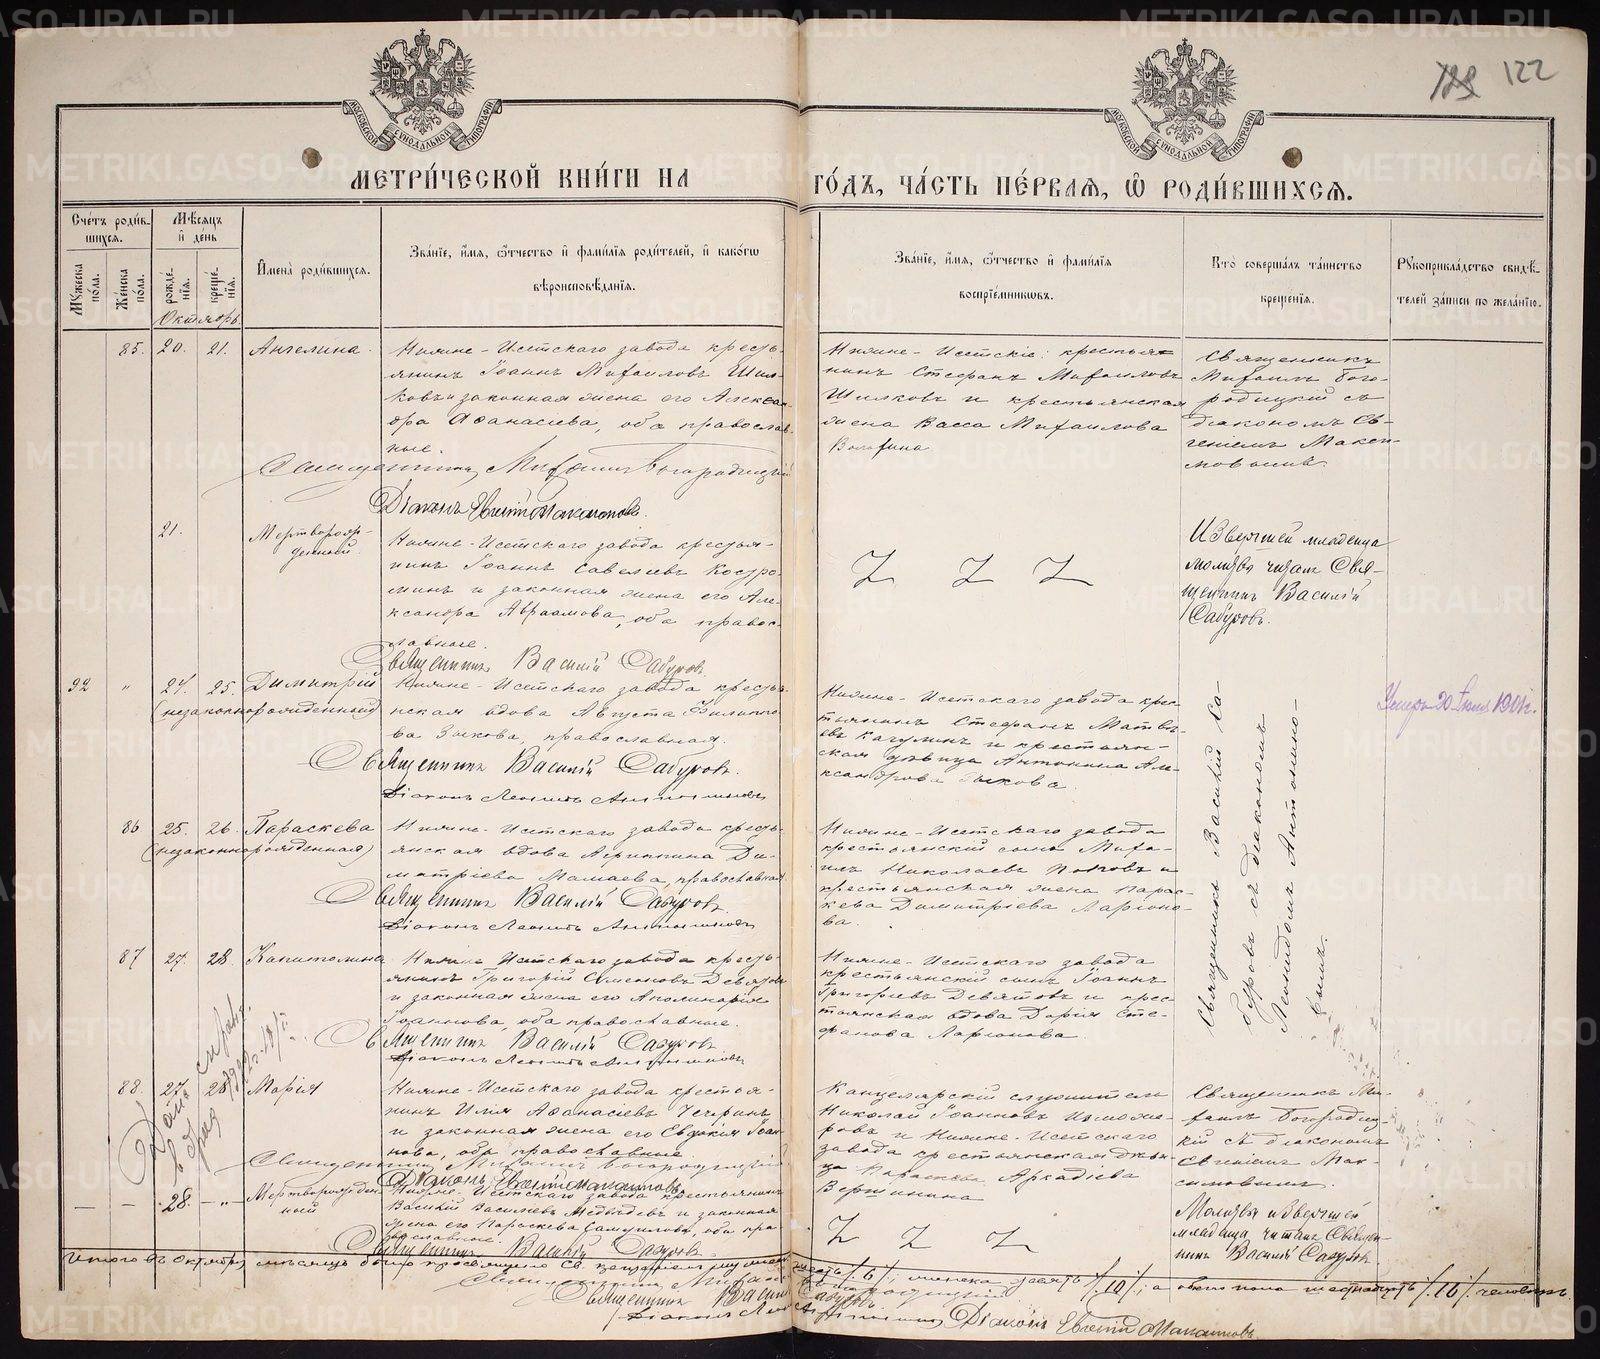 122
МОСКОВСКОЙ СѴНОДАЛЬНОЙ ТИПОГРАФІИ
МОСКОВСКОЙ СѴНОДАЛЬНОЙ ТИПОГРАФІИ
МЕТРИ́ЧЕСКОЙ КНИ́ГИ НА
ГО́ДЪ, ЧА́СТЬ ПЕ́РВАЯ, Ѽ РОДИ́ВШИХСЯ.
Сче́тъ роди́в-
шихся.
Мѣсяцъ
и де́нь
Му́жеска по́ла.
Же́нска по́ла.
рожде́нїя.
креще́нїя.
Имена̀ роди́вшихся.
Зва́нїе, и́мя, ѻ́тчество и фами́лїя роди́телей, и како́гѡ
вѣроисповѣ́данїя.
Зва́нїе, и́мя, ѻ́тчество и фами́лїя
воспрїе́мниковъ.
Кто̀ соверша́лъ та́инство
креще́нїя.
Рукоприкла́дство свидѣ́-
телей за́писи по жела́нїю.
Октябрь
85. 20. 21. Ангелина.
Нижне-Исетскаго завода кресть-
янинъ Іоаннъ Михаиловъ Шил-
ковъ и законная жена его Алексан-
дра Аѳанасіева, оба православ-
ные.
Священникъ Михаилъ Богородицкій
Діаконъ Евгеній Максимовъ.
Нижне-Исетскіе: крестья-
нинъ Стефанъ Михаиловъ
Шилковъ и крестьянская
жена Васса Михаилова
Священникъ
Михаилъ Бого-
родицкій съ
діакономъ Ев-
геніемъ Макси-
мовымъ.
21. Мертворож-
денный.
Нижне-Исетскаго завода крестья-
нинъ Іоаннъ Савеліевъ Костро-
минъ и законная жена его Але-
ксандра Авраамова, оба правос-
лавные.
Священникъ Василій Сабуровъ
Извергшей младенца
молитву читалъ Свя-
щенникъ Василій
Сабуровъ.
92 " 24. 25. Димитрій
(незаконнорожденный)
Нижне-Исетскаго завода кресть-
янская вдова Августа Филиппо-
ва Зыкова, православная.
Священникъ Василій Сабуровъ.
Діаконъ Леонидъ Антониновъ
Нижне-Исетскаго завода крес-
тьянинъ Стефанъ Матвѣ-
евъ и крестьян-
ская дѣвица Антонина Але-
ксандрова Зыкова.
Священникъ Василій Са-
буровъ съ діакономъ
Леонидомъ Антонино-
вымъ.
Умеръ 30 1901г.
86 25. 26. Параскева
(незаконнорожденная)
Нижне-Исетскаго завода кресть-
янская вдова Агриппина Ди-
митріева Мамаева, православная
Священникъ Василій Сабуровъ.
Діаконъ Леонидъ Антониновъ
Нижне-Исетскаго завода
крестьянскій сынъ Миха-
илъ Николаевъ Поповъ и
крестьянская жена Парас-
кева Димитріева Ларіоно-
ва.
87 27. 28. Капитолина
Нижне-Исетскаго завода кресть-
янинъ Григорій Симеоновъ Девятовъ
и законная жена его Аполинарія
Іоаннова, оба православные.
Священникъ Василій Сабуровъ.
Діаконъ Леонидъ Антониновъ
Нижне-Исетскаго завода
крестьянскій сынъ Іоаннъ
Григоріевъ Девятовъ и крес-
тьянская вдова Дарія Сте-
фанова Ларіонова.
88. 27. 28. Марія
Нижне-Исетскаго завода крестья-
нинъ Илія Аѳанасіевъ
и законная жена его Евдокія Іоан-
нова, оба православные.
Священникъ Михаилъ Богородицкій
Діаконъ Евгеній Максимовъ.
Канцелярскій служитель
Николай Іоанновъ
и Нижне-Исетскаго
завода крестьянская дѣви-
ца Параскева Аркадіева
Вершинина
Священникъ Ми-
хаилъ Богородиц-
кій съ діакономъ
Евгеніемъ Мак-
симовымъ.
Дана справка
— — 28. — " — Мертворожден-
ный
Нижне-Исетскаго завода крестьянинъ
Василій Василіевъ Медвѣдевъ и законная
жена его Параскева Самуилова, оба пра-
вославные.
Священникъ Василій Сабуровъ.
Молитву извергшей
младенца читалъ Священ-
никъ Василій Сабуровъ.
Итого въ октябрѣ мѣсяцѣ было просвѣщено Св. крещеніемъ: мужеска шесть /6/, женска десять /10/; а обоего пола шестнадцать /16/ человѣкъ.
Священникъ Михаилъ Богородицкій
Священникъ Василій Сабуровъ.
Діаконъ Леонидъ Антониновъ Діаконъ Евгеній Максимовъ.
METRIKI.GASO-URAL.RU